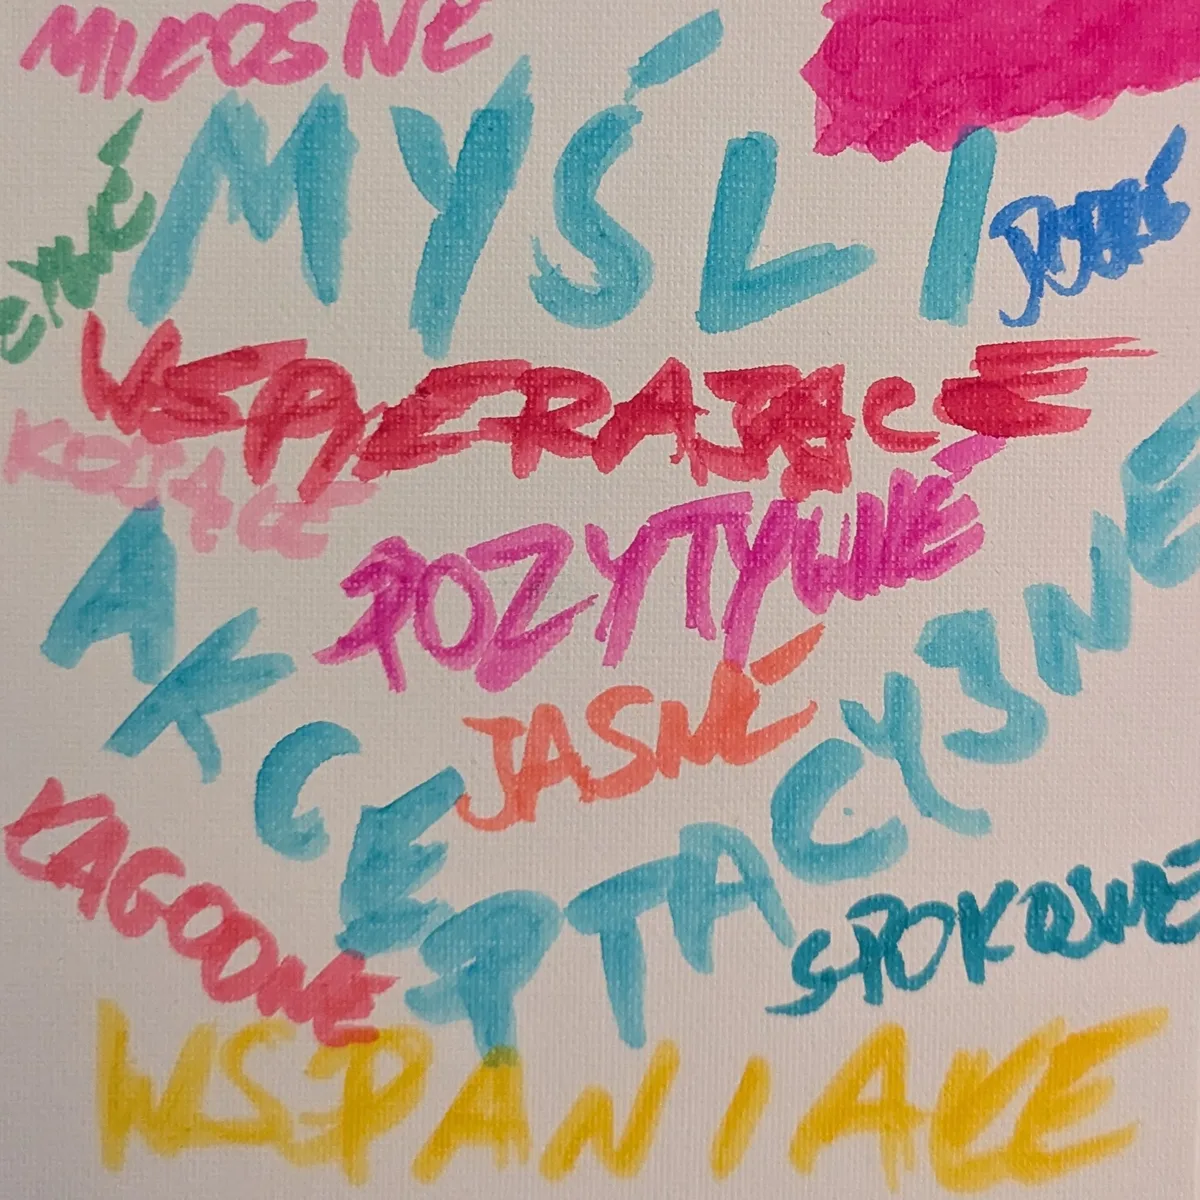 MIŁOSNE
MYŚLI
WSPIERAJĄCE
KOJĄCE
POZYTYWNE
JASNE
AKCEPTACYJNE
ŁAGODNE
SPOKOJNE
WSPANIAŁE